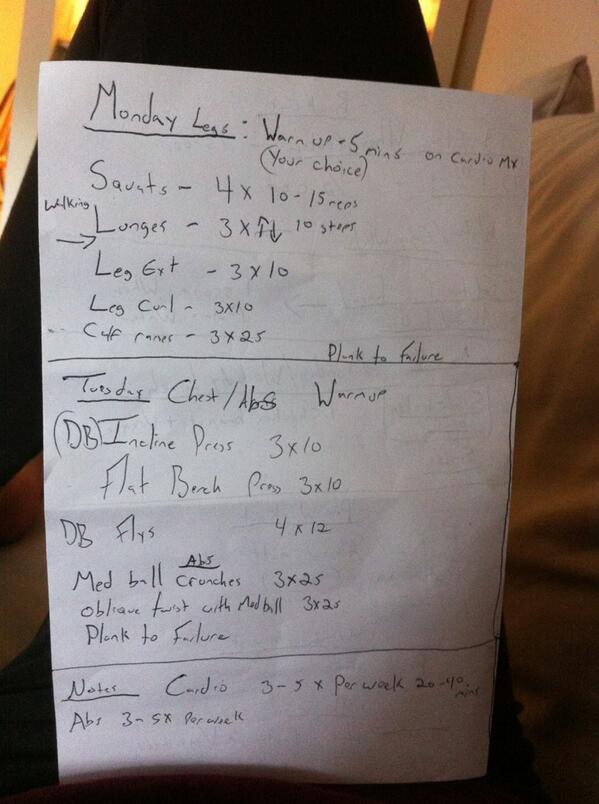 Monday Legs: Warm up - 5 mins on Cardio Mx
(Your choice)
Squats - 4 x 10-15 reps
Walking
→ Lunges - 3 x ↑↓ 10 steps
Leg Ext - 3 x 10
Leg Curl - 3x10
Calf raises - 3 x 25
Plank to Failure
Tuesday Chest/Abs Warmup
(DB) Incline Press 3x10
Flat Bench Press 3x10
DB Flys 4 x 12
Abs
Med ball Crunches 3x25
oblique twist with Medball 3x25
Plank to Failure
Notes Cardio 3-5 x Per week 20-40 mins
Abs 3-5x Per week